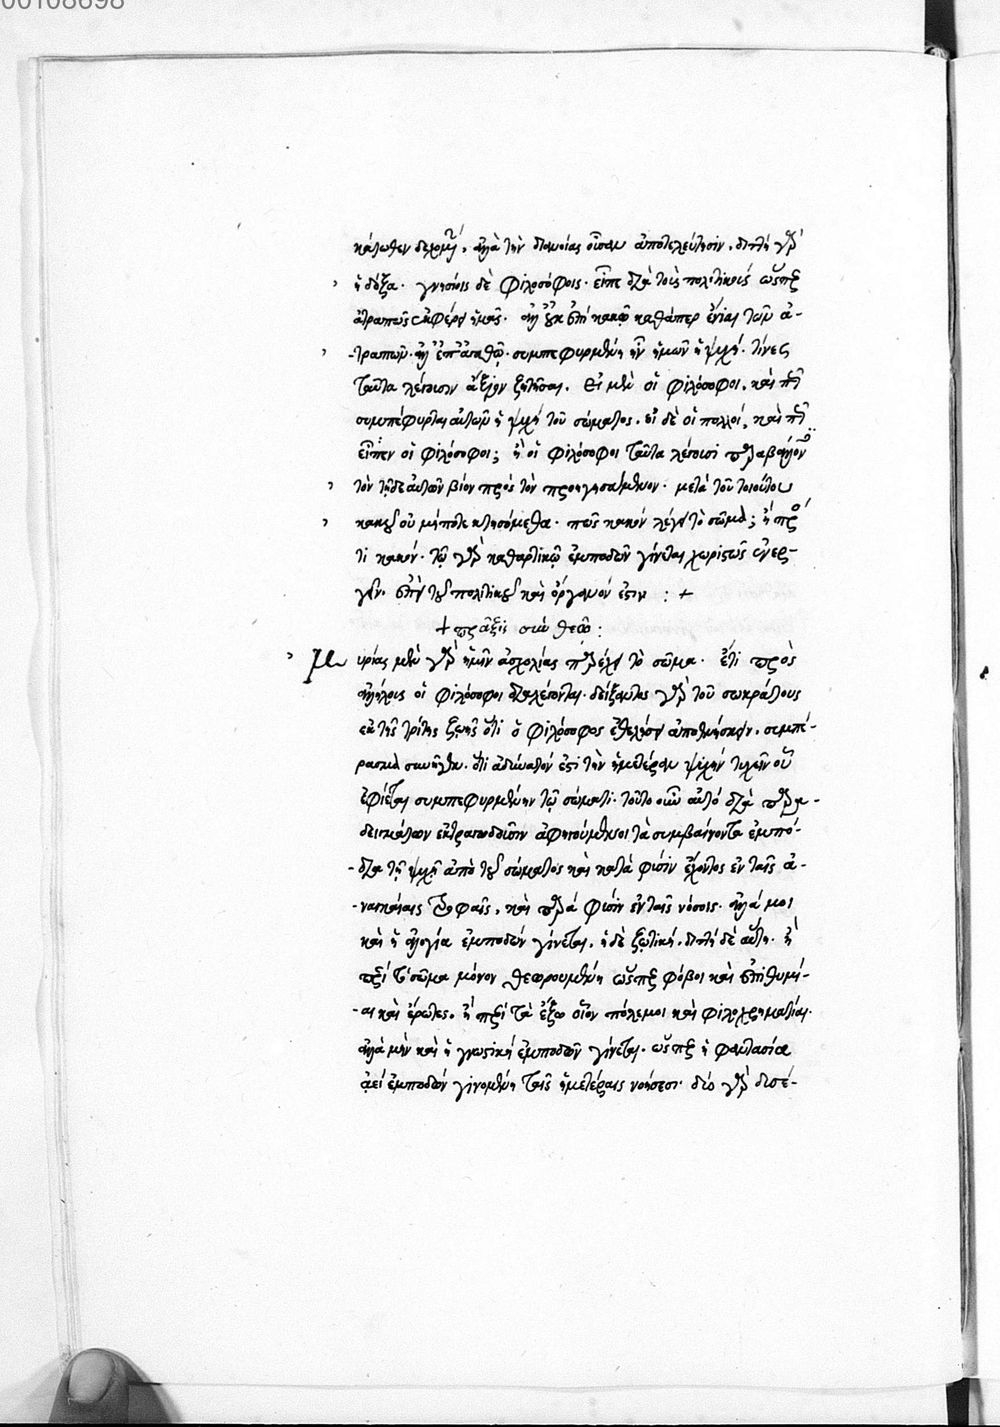 00108698
κάτωθεν δεχομένη, ἀλλὰ τὴν διανοίας οὖσαν ἀποτελεύτησιν. διττὴ γὰρ
ἡ δόξα. γνησίοις δὲ φιλοσόφοις. εἶπε διὰ τοὺς πολιτικούς ὥσπερ
ἀτραπὸς ἐκφέρει ἡμᾶς. ἀλλ' οὐκ ἐπὶ κακῷ καθάπερ ἔνιαι τῶν ἀ-
τραπῶν. ἀλλ' ἐπ' ἀγαθῷ. συμπεφυρμένη ἦν ἡμῶν ἡ ψυχή. τίνες
ταῦτα λέγουσιν ἄξιον ζητῆσαι. εἰ μὲν οἱ φιλόσοφοι, καὶ πῶς
συμπέφυρται αὐτῶν ἡ ψυχή τοῦ σώματος. εἰ δὲ οἱ πολλοί, καὶ πῶς
εἶπεν οἱ φιλόσοφοι; ἢ οἱ φιλόσοφοι ταῦτα λέγουσι παραβάλλοντες
τὸν τῇδε αὐτῶν βίον πρὸς τὸν προηγησάμενον. μετὰ τοῦ τοιούτου
κακοῦ οὐ μήποτε κτησόμεθα. πῶς κακὸν λέγει τὸ σῶμα; ἢ πρός
τι κακόν. τῷ γὰρ καθαρτικῷ ἐμποδὼν γίνεται χωριστῶς ἐνερ-
γεῖν. ἐπεὶ τοῦ πολιτικοῦ καὶ ὄργανόν ἐστιν : +
+ πρᾶξις σὺν θεῷ :
Μυρίας μὲν γὰρ ἡμῖν ἀσχολίας παρέχει τὸ σῶμα. ἔτι πρὸς
ἀλλήλους οἱ φιλόσοφοι διαλέγονται. δείξαντος γὰρ τοῦ σωκράτους
ἐκ τῆς τρίτης ζωῆς ὅτι ὁ φιλόσοφος ἐθελήσει ἀποθνήσκειν, συμπέ-
ρασμα συνῆκται. ὅτι ἀδύνατόν ἐστι τὴν ἡμετέραν ψυχὴν τυχεῖν οὗ
ἐφίεται συμπεφυρμένην τῷ σώματι. τοῦτο οὖν αὐτό διὰ παρα-
δειγμάτων ἐκτραγῳδοῦσιν ἀφηγούμενοι τὰ συμβαίνοντα ἐμπό-
δια τῇ ψυχῇ ἀπὸ τοῦ σώματος καὶ κατὰ φύσιν ἔχοντος ἐν ταῖς ἀ-
ναγκαίαις τροφαῖς, καὶ παρὰ φύσιν ἐν ταῖς νόσοις. ἀλλά μοι
καὶ ἡ ἀλογία ἐμποδὼν γίνεται, ἡ δὲ ζωτική. διττὴ δὲ αὕτη. ἢ
περὶ τὸ σῶμα μόνον θεωρουμένη ὥσπερ φόβοι καὶ ἐπιθυμί-
αι καὶ ἔρωτες. ἢ περὶ τὰ ἔξω οἷον πόλεμοι καὶ φιλοχρηματίαι.
ἀλλὰ μὴν καὶ ἡ γνωστικὴ ἐμποδὼν γίνεται. ὥσπερ ἡ φαντασία
ἀεὶ ἐμποδὼν γινομένη ταῖς ἡμετέραις νοήσεσι. διό γὰρ δισέ-